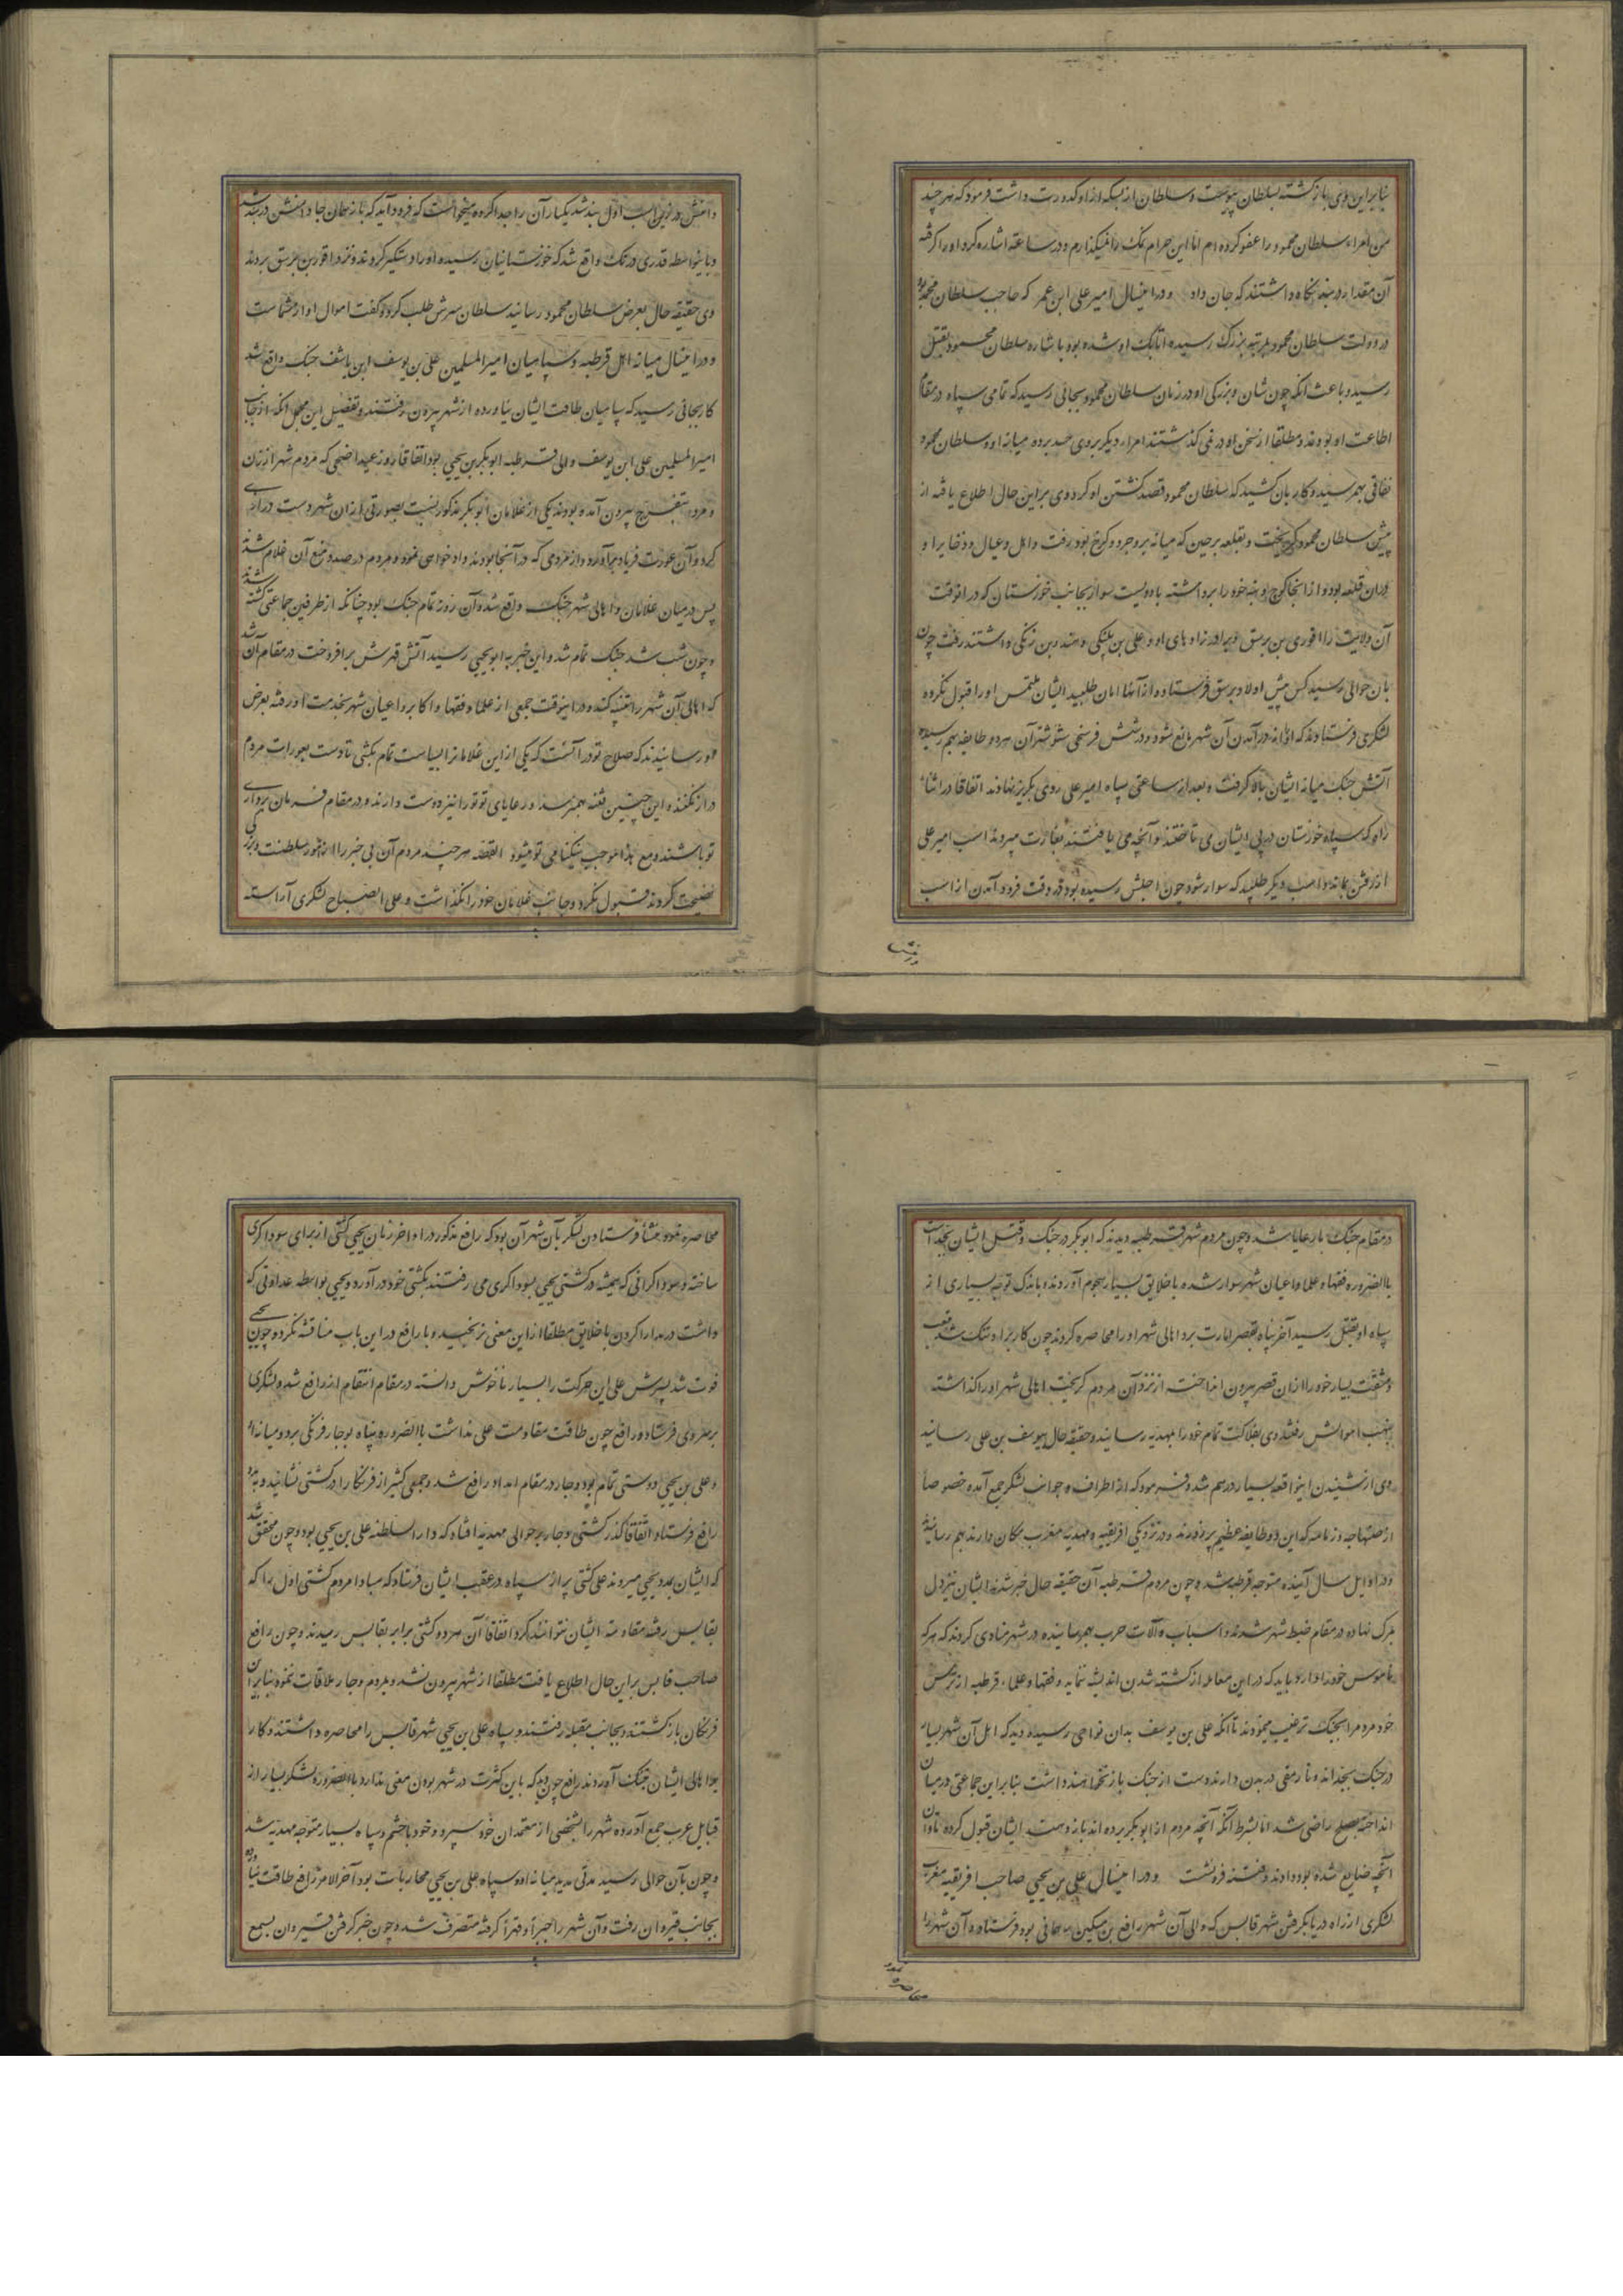 بنابراین وی بازگشته بسلطان پیوست و سلطان از بسکه از او کدورت داشت فرمود که هر چند
من امراء سلطان محمود را عفو کرده ام اما این حرام نمک را نمیکذارم و در ساعت اشاره کرد او را گرفته
آن مقدار در بند نگاه داشتند که جان داد و درا ینسال امیر علی ابن عمر که حاجب سلطان محمد بود
در دولت سلطان محمود بمرتبه بزرک رسیده اتابک او شده بود باشاره سلطان محمود بقتل
رسید و باعث انکه چون شان و بزرکی او در زمان سلطان محمود بجائی رسید که تمامی سپاه در مقام
اطاعت او بودند و مطلقا از سخن او در نمی کذشتند امراء دیکر بر وی حسد برده میانه او و سلطان محمود
نفاقی بهم رسید و کار بان کشید که سلطان محمود قصد کشتن او کرد و وی بر این حال اطلاع یافته از
پیش سلطان محمود کریخت و بقلعه برجین که میانه بروجرد و کرخ بود رفت و اهل و عیال و ذخایر او
در ان قلعه بود و از انجا کوچ و بنه خود را برداشته با دویست سوار بجانب خوزستان که در انوقت
آن ولایت را اقوری بن برسق و برادر زادهای او و علی بن بلنکی و هندو بن زنکی داشتند رفت چون
بان حوالی رسید کس پیش اولاد برسق فرستاده از آنها امان طلبید ایشان ملتمس او را قبول نکرده
لشکری فرستادند که او را از در آمدن آن شهر مانع شود و در شش فرسخی شوشتر آن هر دو طایفه بهم رسیده
آتش جنک میانه ایشان بالا کرفت و بعد از ساعتی سپاه امیر علی روی بکریز نهادند اتفاقا در اثناء
راه که سپاه خوزستان در پی ایشان می تاختند و آنچه می یافتند بغارت میبردند اسب امیر علی
از رفتن بماند و اسب دیکر طلبید که سوار شود چون اجلش رسیده بود در وقت فرود آمدن از اسب
دامنش در زین اسب اول بند شد یکبار آن را جدا کرده میخواست که فرود آید که باز همان جا دامنش در بند شد
و باینواسطه قدری درنک واقع شد که خوزستانیان رسیده او را دستکیر کردند و نزد اقوری بن برسق بردند
وی حقیقه حال بعرض سلطان محمود رسانید سلطان سرش طلب کرد و کفت اموال او از شماست
و درا ینسال میانه اهل قرطبه و سپاهیان امیر المسلمین علی بن یوسف ابن تاشفین جنک واقع شد
کار بجائی رسید که سپاهیان طاقت ایشان نیاورده از شهر بیرون رفتند و تفصیل این مجمل انکه از جانب
امیر المسلمین علی ابن یوسف والی قرطبه ابو بکر بن یحیی بود اتفاقا روز عید اضحی که مردم شهر از زن
و مرد بتفرج بیرون آمده بودند یکی از غلامان ابو بکر مذکور نسبت بعورتی از ان شهر دست درازی
کرد و آن عورت فریاد برآورد و از مردمی که در آنجا بودند دادخواهی نمود و مردم در صدد منع آن غلام شدند
پس در میان غلامان و اهالی شهر جنک واقع شد و آن روز تمام جنک بود چنانکه از طرفین جماعتی کشته شدند
و چون شب شد جنک تمام شد و این خبر به ابو یحیی رسید آتش قهرش برافروخت در مقام آن شد
که اهالی آن شهر را تنبیه کند و در اینوقت جمعی از علما و فقها و اکابر و اعیان شهر بخدمت او رفته بعرض
او رسانیدند که صلاح تو در آنست که یکی از این غلامان را بسیاست تمام بکشی تا دست بعورات مردم
دراز نکنند و این چنین فتنه بهم نرسد و رعایای تو تو را نیز دوست دارند و در مقام فرمان برداری
تو باشند و مع هذا موجب نیکنامی تو میشود القصه هر چند مردم آن بی خبر را از امور سلطنت
نصیحت کردند قبول نکرد و جانب غلامان خود را نکذاشت و علی الصباح لشکری آراسته
در مقام جنک با رعایا شد و چون مردم شهر قرطبه دیدند که ابو بکر در جنک و قتل ایشان بجد است
بالضروره فقها و علما و اعیان شهر سوار شده با خلایق بسیار هجوم آوردند و باندک توجه بسیاری از
سپاه او بقتل رسید آخر پناه بقصر امارت برد اهالی شهر او را محاصره کردند چون کار بر او تنک شد بتعب
و مشقت بسیار خود را از ان قصر بیرون انداخت از نزد آن مردم کریخت اهالی شهر او را کذاشته
بنهب اموالش رفتند وی بفلاکت تمام خود را بمهدیه رسانید و حقیقه حال بیوسف بن علی رسانید
وی از شنیدن اینواقعه بسیار در هم شد و فرمود که از اطراف و جوانب لشکر جمع آمده خصوصا
از صنهاجه و زناته که این دو طایفه عظیم پر زورند و در نزدیکی افریقیه و مهدیه مغرب مکان دارند بهم رسانیده
و در اوایل سال آینده متوجه قرطبه شد و چون مردم قرطبه از آن حقیقه حال خبر شدند ایشان نیز دل
بمرک نهاده در مقام ضبط شهر شدند و اسباب و آلات حرب بهم رسانیده در شهر منادی کردند که هر که
ناموس خود را دارد باید که در این معامله از کشته شدن اندیشه ننماید و فقها و علماء قرطبه از ترس
خود مردم را بجنک ترغیب مینمودند تا آنکه علی بن یوسف بدان نواحی رسیده دید که اهل آن شهر بسیار
در جنک بجد اند و تا رمقی در بدن دارند دست از جنک باز نخواهند داشت بنابر این جماعتی در میان
انداخته بصلح راضی شد اما بشرط آنکه آنچه مردم از ابو بکر برده اند باز دهند ایشان قبول کرده تاوان
آنچه ضایع شده بود دادند و فتنه فرو نشست و درا ینسال علی بن یحیی صاحب افریقیه مغرب
لشکری از راه دریا بکرفتن شهر قابس که والی آن شهر رافع بن مکین بود فرستاد و آن شهر را
محاصره نمود و منشأ فرستادن لشکر بآن شهر آن بود که رافع مذکور در اواخر زمان یحیی کشتی از برای سوداکری
ساخته و سوداکرانی که همیشه در کشتی یحیی بسوداکری می رفتند بکشتی خود در آورد و یحیی بواسطه عداوتی که
داشت در مدارا کردن با خلایق مطلقا از این معنی نرنجید و با رافع در این باب مناقشه نکرد و چون یحیی
فوت شد پسرش علی این حرکت را بسیار ناخوش دانسته در مقام انتقام از رافع شد و لشکری
بر سر وی فرستاد و رافع چون طاقت مقاومت علی نداشت بالضروره پناه بوجار فرنکی برد و میانه او
و علی بن یحیی دوستی تمام بود وجار در مقام امداد رافع شد و جمعی کثیر از فرنکان را در کشتی نشانید و بمدد
رافع فرستاد اتفاقا کذر کشتی وجار بر حوالی مهدیه افتاد که دار السلطنه علی بن یحیی بود و چون محقق شد
که ایشان بمدد یحیی میروند علی کشتی پر از سپاه در عقب ایشان فرستاد که مبادا مردم کشتی اول را که
بقابس رفته مقاومت ایشان نتوانند کرد اتفاقا آن هر دو کشتی برابر بقابس رسیدند و چون رافع
صاحب قابس بر این حال اطلاع یافت مطلقا از شهر بیرون نشد و بمردم وجار ملاقات ننمود بنابراین
فرنکان باز کشتند و بجانب صقلیه رفتند و سپاه علی بن یحیی شهر قابس را محاصره داشتند و کار
بر اهالی ایشان بتنک آوردند رافع چون دید که باین کثرت در شهر بودن معنی ندارد بالضروره لشکر بسیار از
قبایل عرب جمع آورده شهر را بشخصی از معتمدان خود سپرد و خود با حشم و سپاه بسیار متوجه مهدیه شد
و چون بآن حوالی رسید مدتی مدید میانه او و سپاه علی بن یحیی محاربات بود آخر الامر رافع طاقت نیاورده
بجانب قیروان رفت و آن شهر را جبراً و قهراً کرفته متصرف شد و چون خبر کرفتن قیروان بسمع